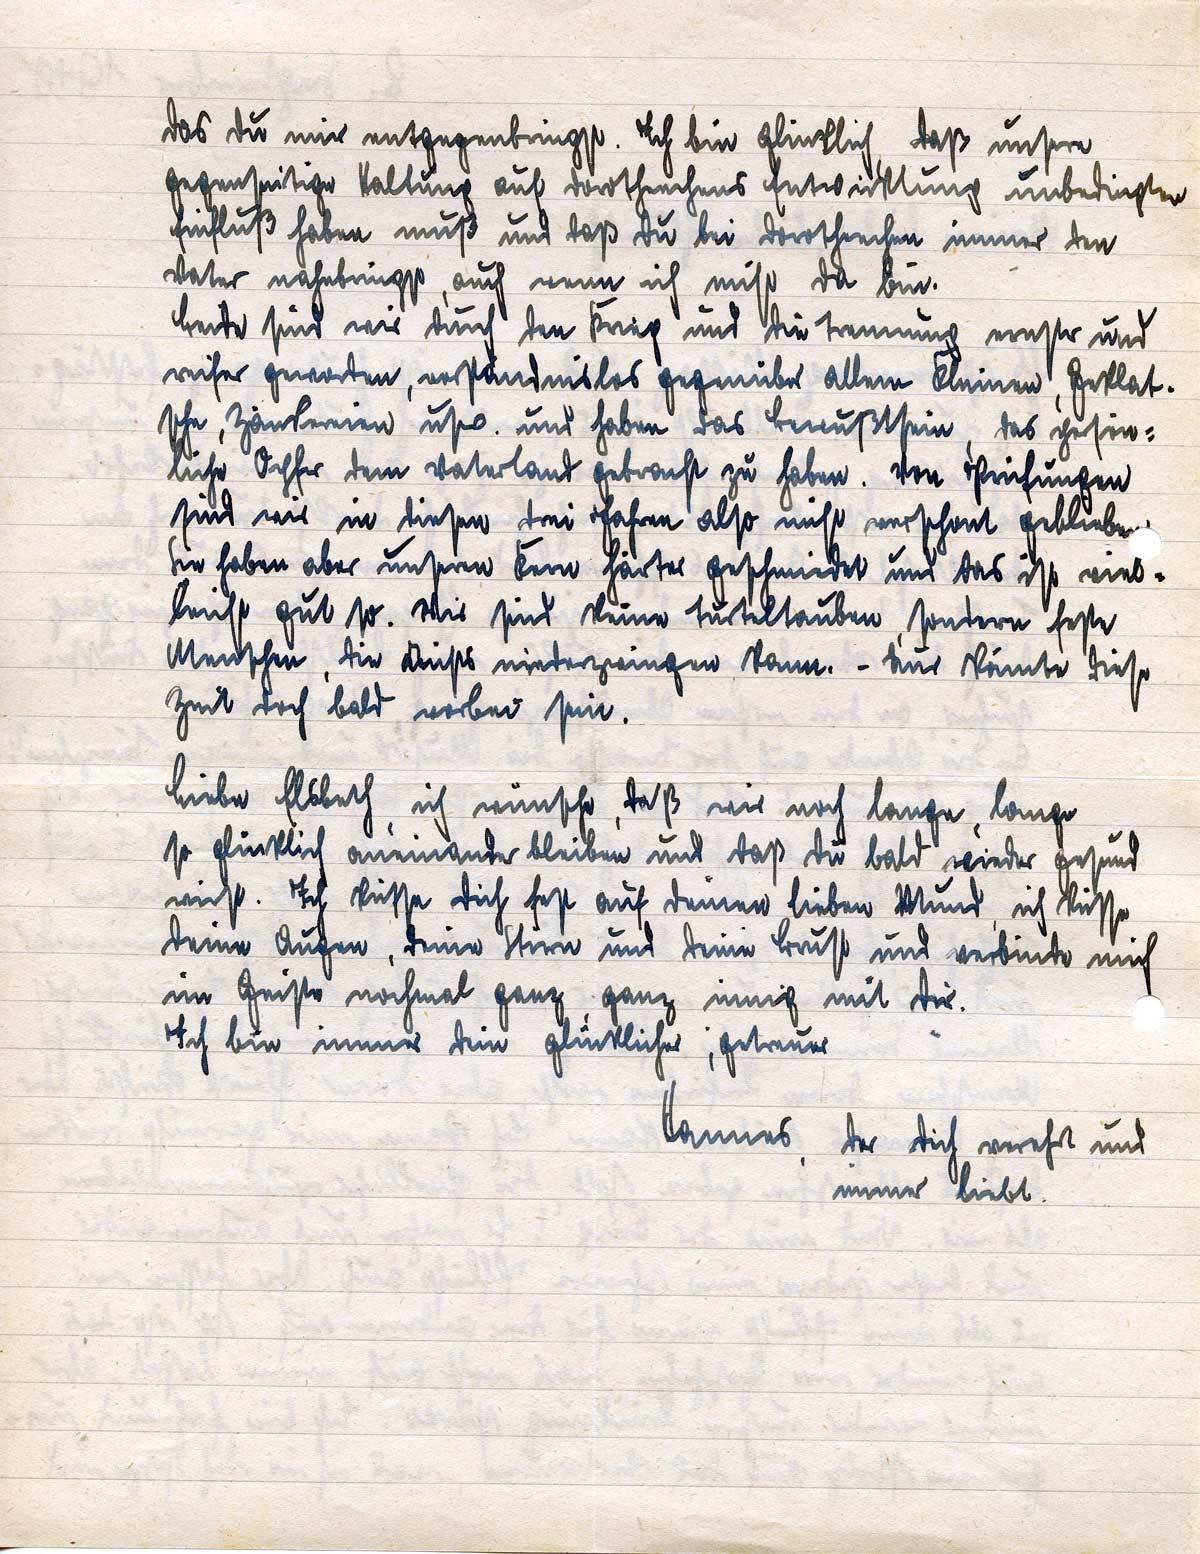 das Du mir entgegenbringst. Ich bin glücklich, daß unsere
gegenseitige Haltung auf Dorotheechens Entwicklung unbedingten
Einfluß haben muß und daß Du bei Dorotheechen immer den
Vater nahebringst, auch wenn ich nicht da bin.
Beide sind wir durch den Krieg und die Trennung ernster und
reifer geworden, verständnislos gegenüber allem Kleinen, Geklat-
sche, Zänkereien usw. und haben das Bewußtsein, das persön=
liche Opfer dem Vaterland gebracht zu haben. Von Prüfungen
sind wir in diesen drei Jahren also nicht verschont geblieben.
Sie haben aber unseren Kern härter geschmiedet und das ist viel=
leicht gut so. Wir sind keine Turteltauben, sondern feste
Menschen, die nichts niederzwingen kann. – Nur könnte diese
Zeit doch bald vorbei sein.
Liebe Elsbeth, ich wünsche, daß wir noch lange, lange
so glücklich aneinander bleiben und daß Du bald wieder gesund
wirst. Ich küsse Dich fest auf deinen lieben Mund, ich küsse
deine Augen, deine Stirn und deine Brust und verbinde mich
im Geiste nochmal ganz, ganz innig mit Dir.
Ich bin immer dein glücklicher, getreuer
Hannes, der dich verehrt und
immer liebt.